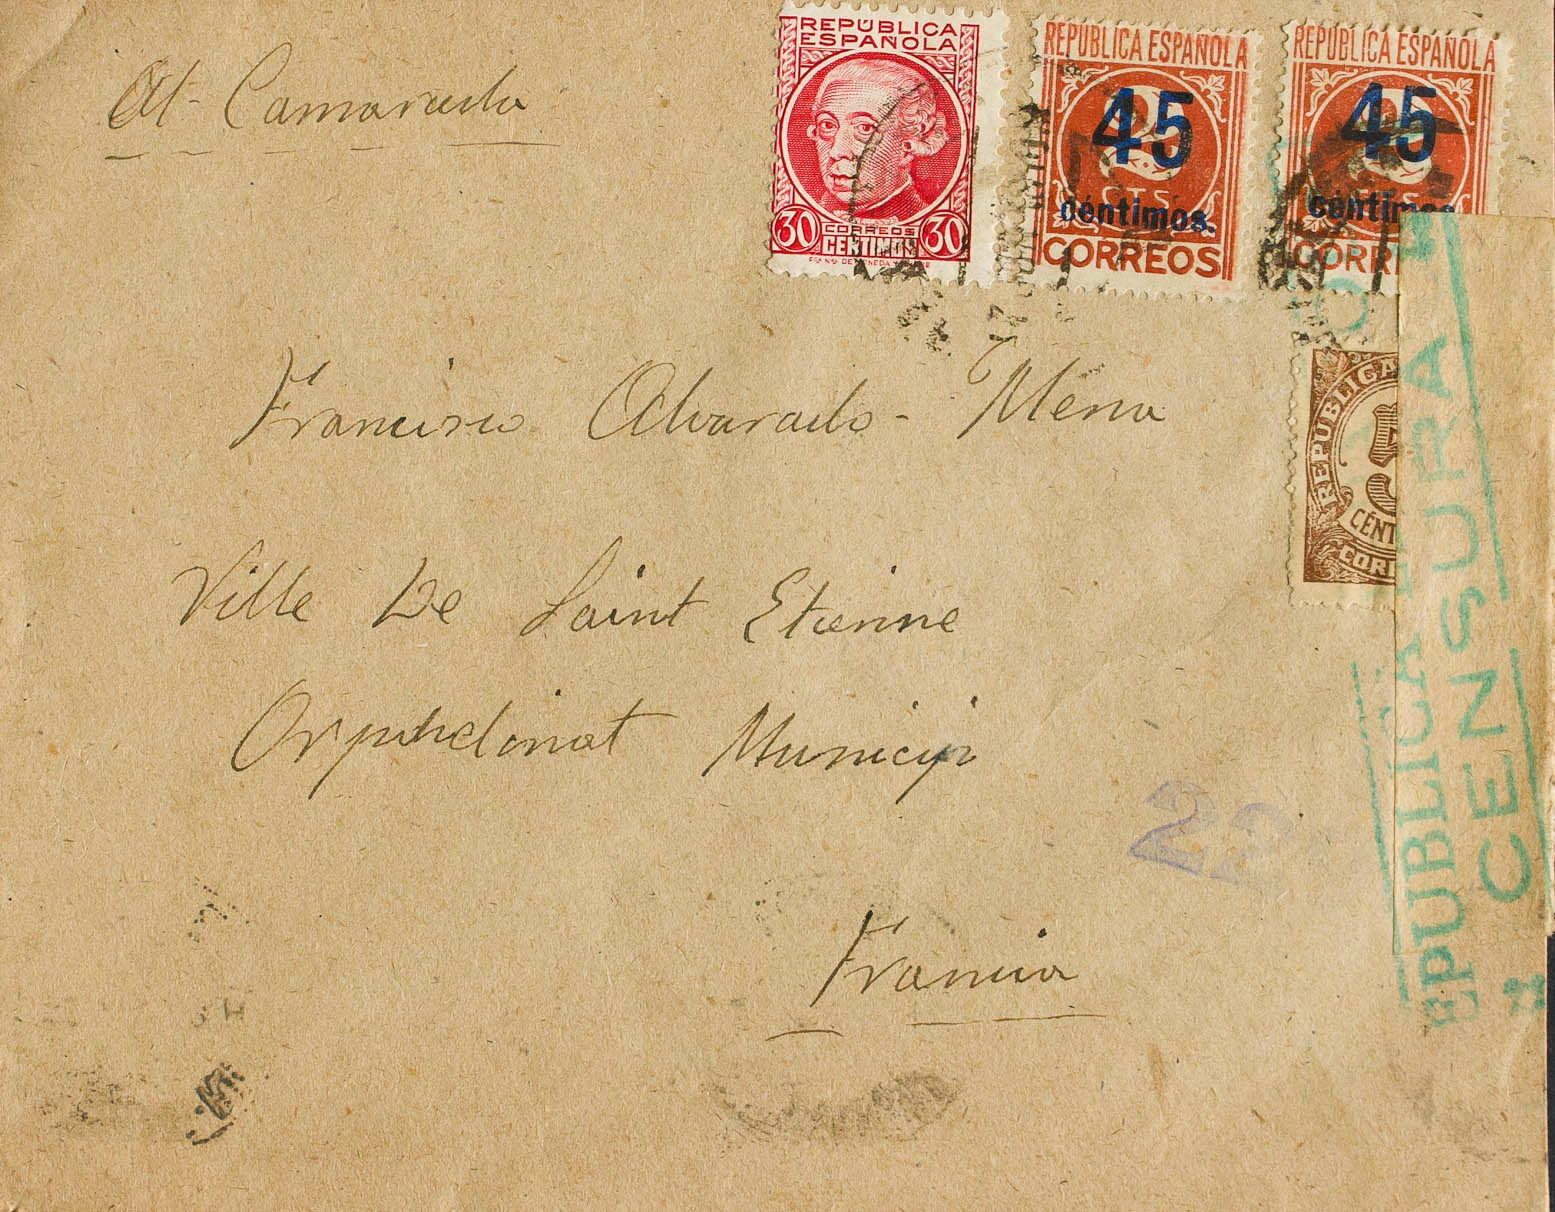 REPÚBLICA
ESPAÑOLA
30 CORREOS 30
CENTIMOS
REPUBLICA ESPAÑOLA
2
45
CTS
céntimos.
CORREOS
REPUBLICA ESPAÑOLA
2
45
céntimos
CORR
REPUBLICA
5
CÉNT
CORR
Al- Camarada
Francisco Alvarado- Mena
Ville De Saint Etienne
Orphelinat Municip
Francia
22
EPUBLICA
CENSURA